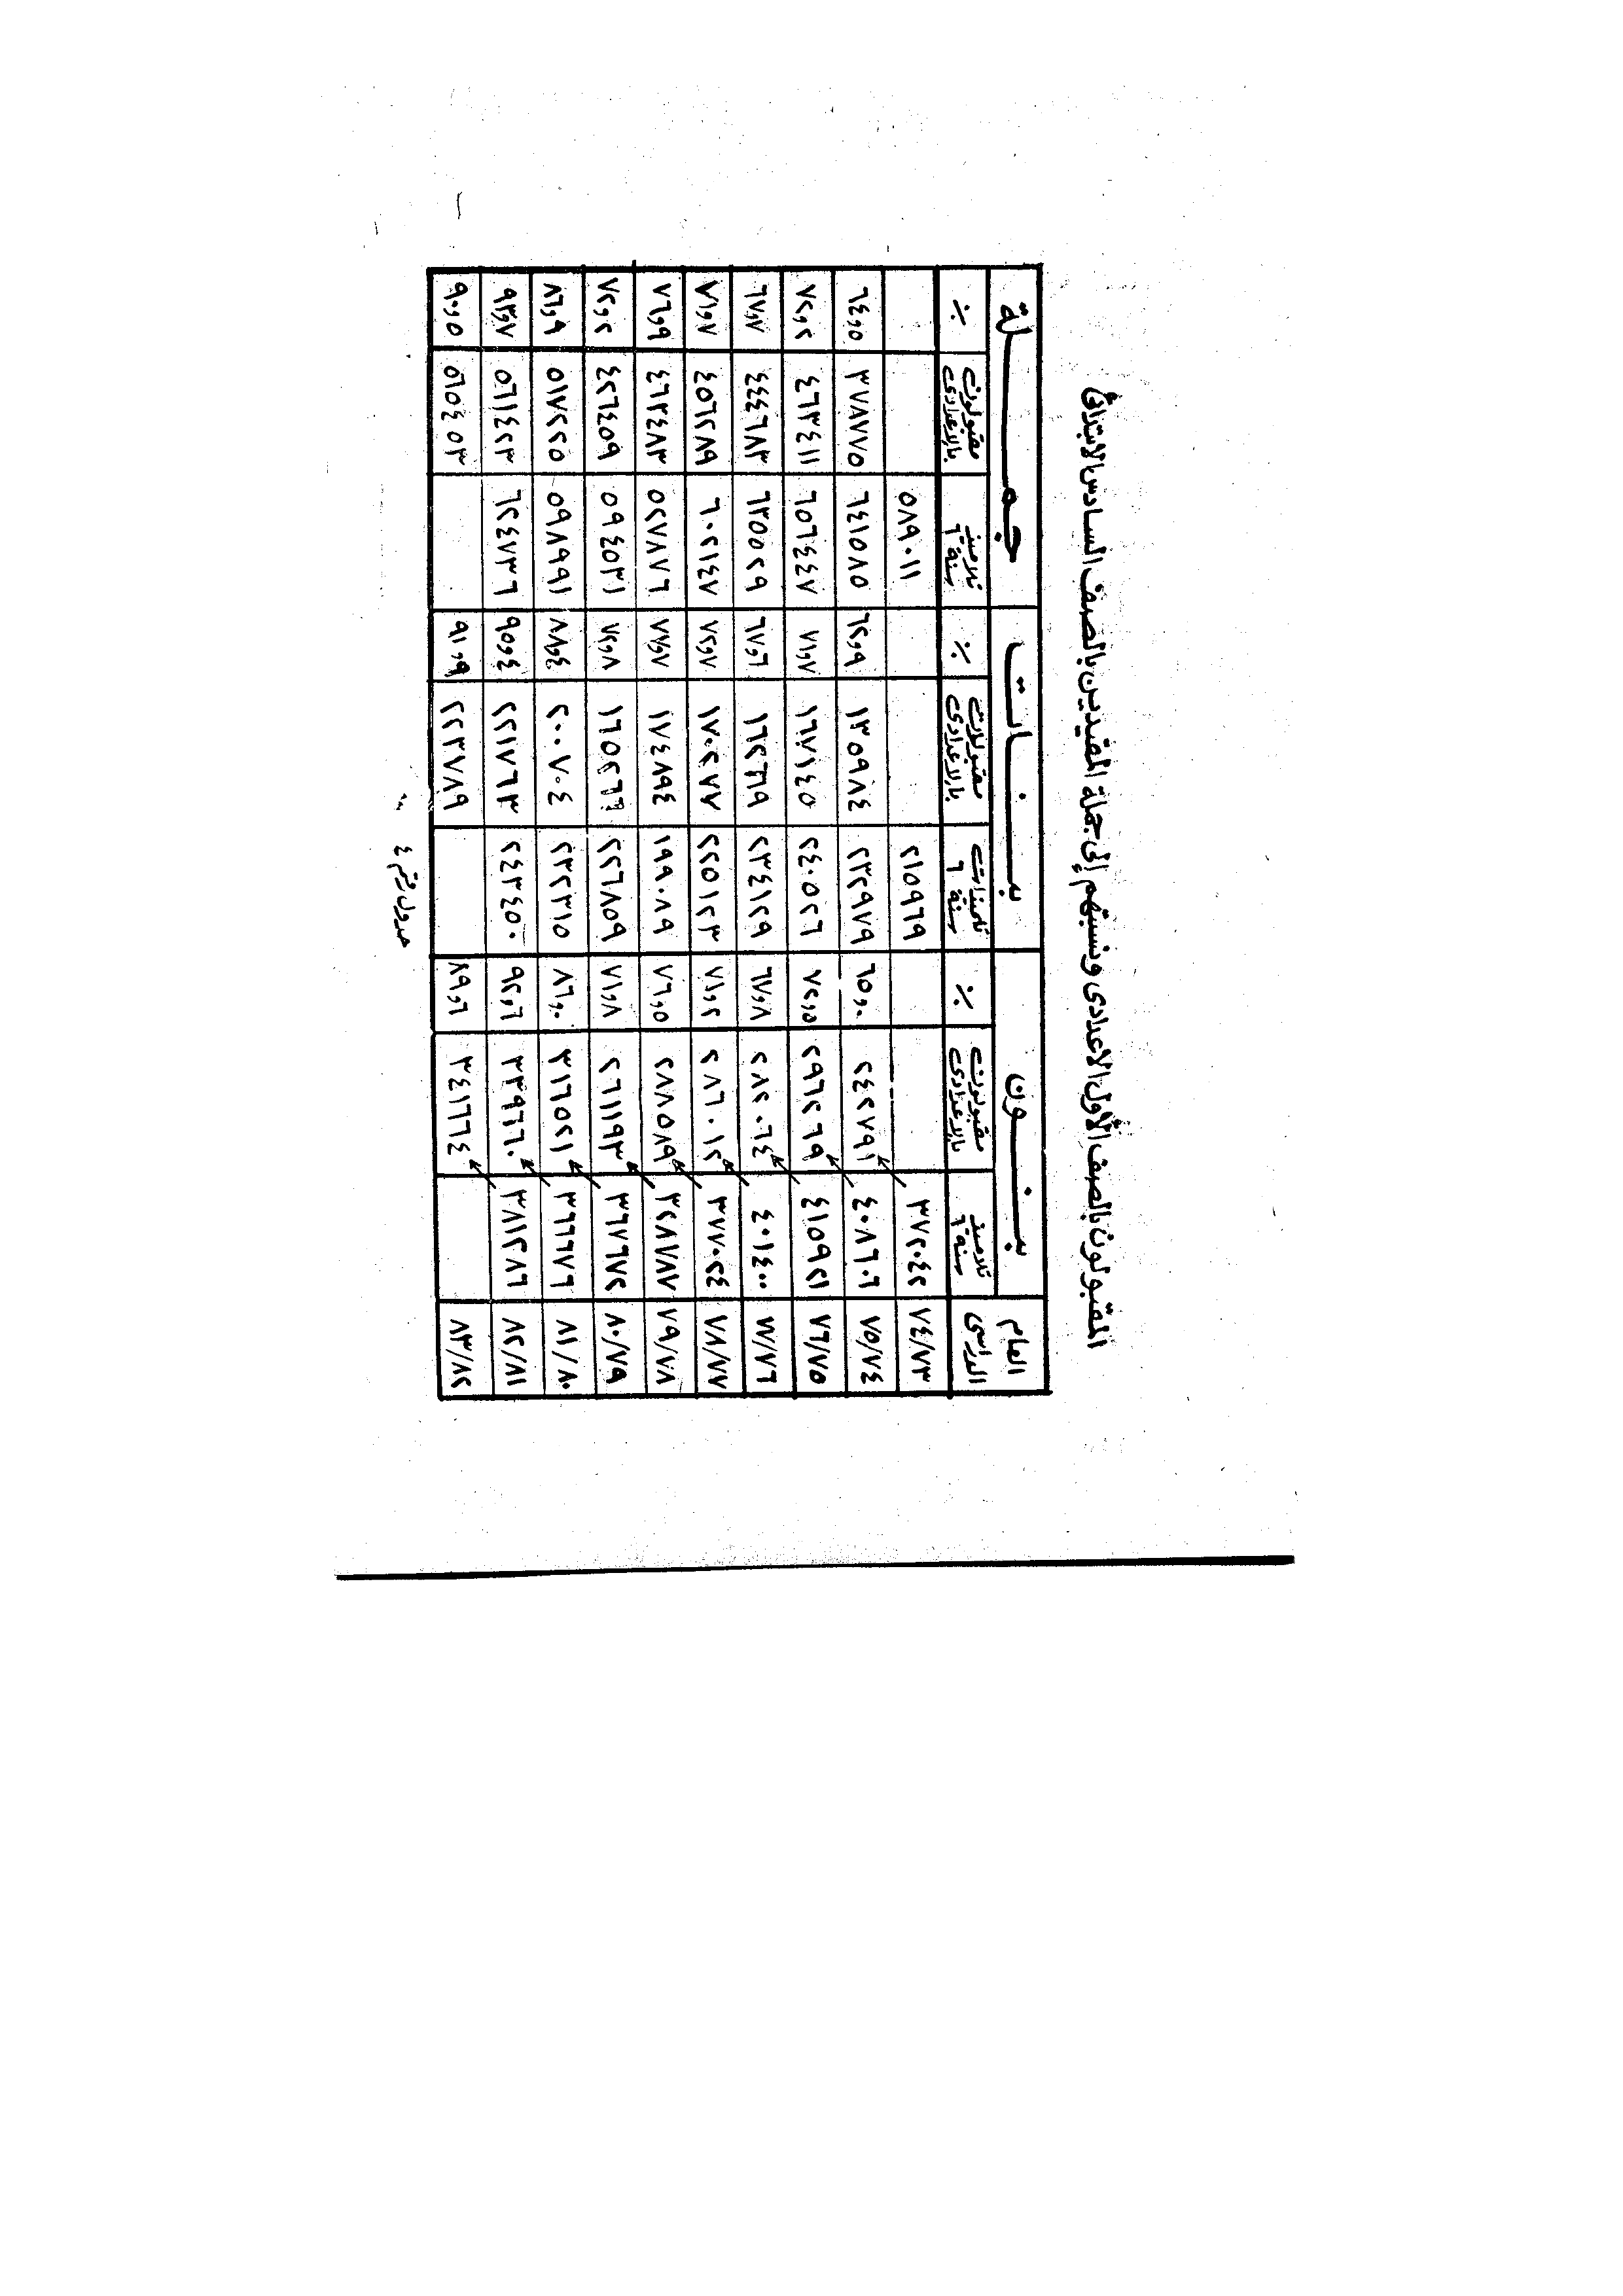 المقبولون بالصف الأول الاعدادى ونسبتهم إلى جملة المقيدين بالصف السادس الابتدائى
العام الدراسى بنون بنات جملة
تلاميذ سنة ٦ مقبولون بالاعدادى ٪ تلميذات سنة ٦ مقبولات بالاعدادى ٪ تلاميذ سنة ٦ مقبولون بالاعدادى ٪
٧٤/٧٣ ٣٧٢٠٤٢ ٢١٥٩٦٩ ٥٨٩٠١١
٧٥/٧٤ ٤٠٨٦٠٦ ٢٤٢٧٩١ ٦٥,٠ ٢٣٢٩٧٩ ١٣٥٩٨٤ ٦٢,٩ ٦٤١٥٨٥ ٣٧٨٧٧٥ ٦٤,٥
٧٦/٧٥ ٤١٥٩٢١ ٢٩٦٢٦٩ ٧٢,٥ ٢٤٠٥٢٦ ١٦٧١٤٥ ٧١,٧ ٦٥٦٤٤٧ ٤٦٣٤١١ ٧٢,٢
٧٧/٧٦ ٤٠١٤٠٠ ٢٨٢٠٦٤ ٦٧,٨ ٢٣٤١٢٩ ١٦٢٦١٩ ٦٧,٦ ٦٣٥٥٢٩ ٤٤٤٦٨٣ ٦٧,٧
٧٨/٧٧ ٣٧٧٠٢٤ ٢٨٦٠١٢ ٧١,٢ ٢٢٥١٢٣ ١٧٠٢٧٧ ٧٢,٧ ٦٠٢١٤٧ ٤٥٦٢٨٩ ٧١,٧
٧٩/٧٨ ٣٢٨٧٨٧ ٢٨٨٥٨٩ ٧٦,٥ ١٩٩٠٨٩ ١٧٤٨٩٤ ٧٧,٧ ٥٢٧٨٧٦ ٤٦٣٤٨٣ ٧٦,٩
٨٠/٧٩ ٣٦٧٦٧٢ ٢٦١١٩٣ ٧١,٨ ٢٢٦٨٥٩ ١٦٥٢٦٦ ٧٢,٨ ٥٩٤٥٣١ ٤٢٦٤٥٩ ٧٢,٢
٨١/٨٠ ٣٦٦٦٧٦ ٣١٦٥٢١ ٨٦,٠ ٢٣٢٣١٥ ٢٠٠٧٠٤ ٨٨,٤ ٥٩٨٩٩١ ٥١٧٢٢٥ ٨٦,٩
٨٢/٨١ ٣٨١٢٨٦ ٣٣٩٦٦٠ ٩٢,٦ ٢٤٣٤٥٠ ٢٢١٧٦٣ ٩٥,٤ ٦٢٤٧٣٦ ٥٦١٤٢٣ ٩٣,٧
٨٣/٨٢ ٣٤١٦٦٤ ٨٩,٦ ٢٢٣٧٨٩ ٩١,٩ ٥٦٥٤٥٣ ٩٠,٥
جدول رقم ٤